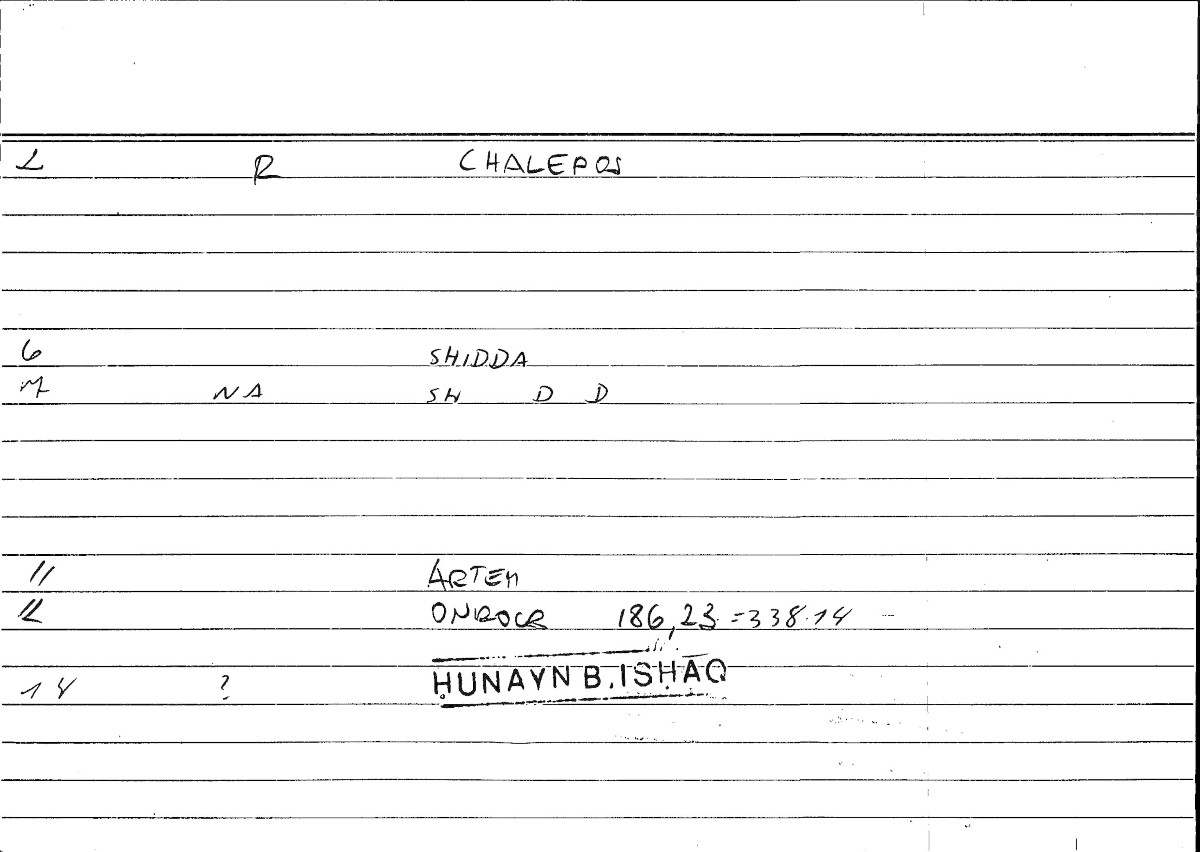 2 R CHALEPOS
6 SHIDDA
7 NA SH D D
11 ARTEM
12 ONIROCR 186,23 = 338.14
14 ? ḤUNAYN B. ISḤĀQ